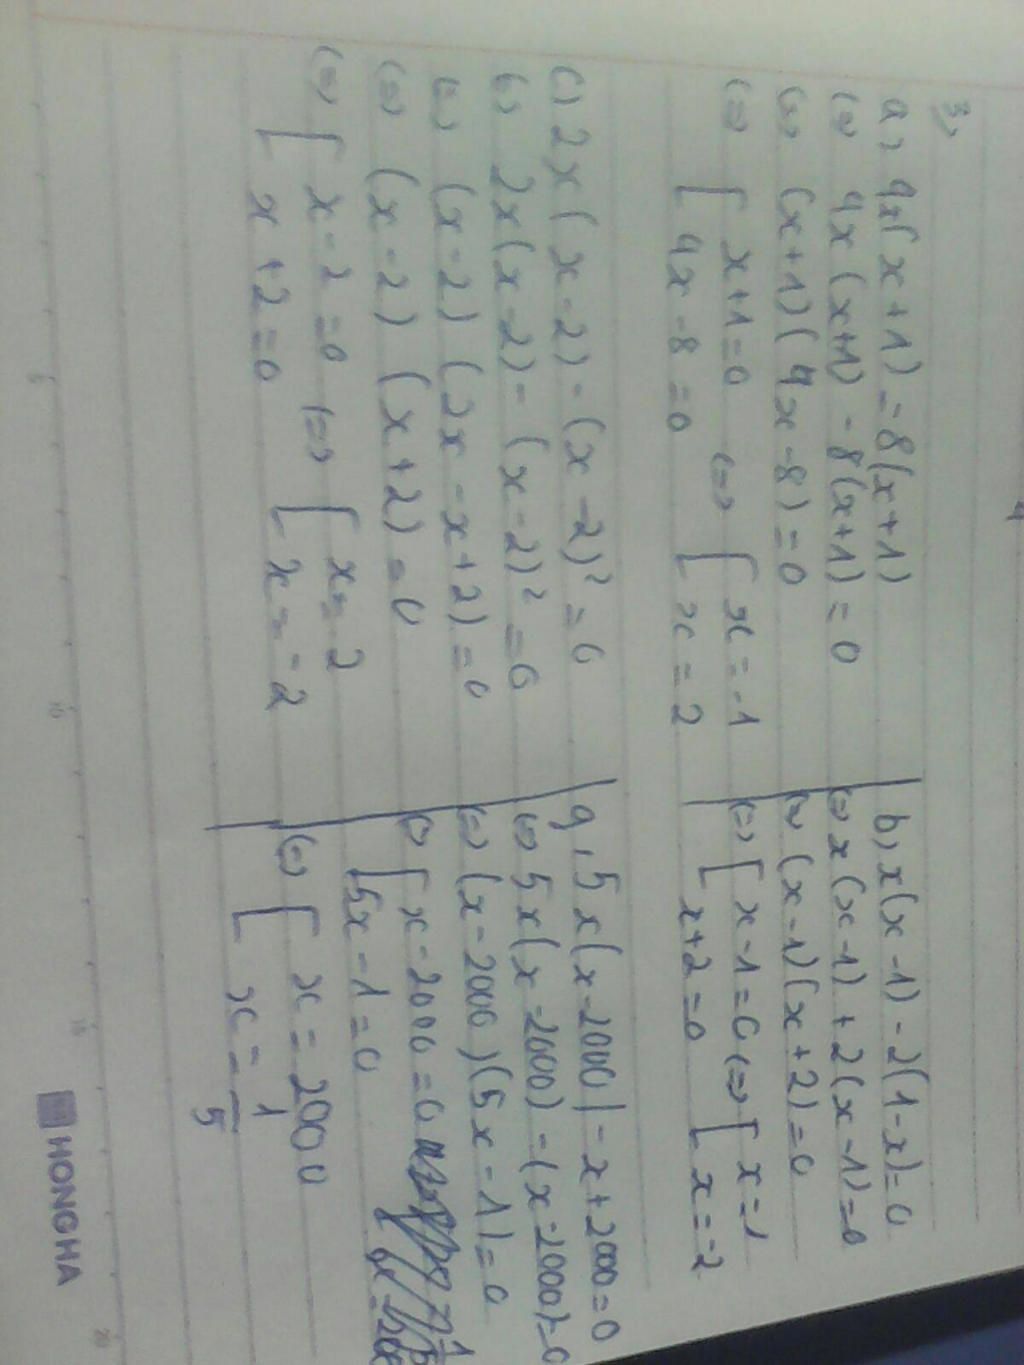 3,
a, 4x(x+1) = 8(x+1)
(=) 4x(x+1) - 8(x+1) = 0
(=) (x+1)(4x-8) = 0
(=) [ x+1=0 (=) [ x = -1
[ 4x-8=0 [ x = 2
b, x(x-1) - 2(1-x) = 0
(=) x(x-1) + 2(x-1) = 0
(=) (x-1)(x+2) = 0
(=) [ x-1=0 (=) [ x=1
[ x+2=0 [ x=-2
c) 2x(x-2) - (x-2)² = 0
(=) 2x(x-2) - (x-2)² = 0
(=) (x-2)(2x-x+2) = 0
(=) (x-2)(x+2) = 0
(=) [ x-2=0 (=) [ x = 2
[ x+2=0 [ x = -2
9, 5x(x-2000) - x+2000=0
(=) 5x(x-2000) - (x-2000)=0
(=) (x-2000)(5x-1) = 0
(=) [ x-2000=0
[ 5x-1=0
(=) [ x = 2000
[ x = 1/5
5
10
15
20
HONGHA